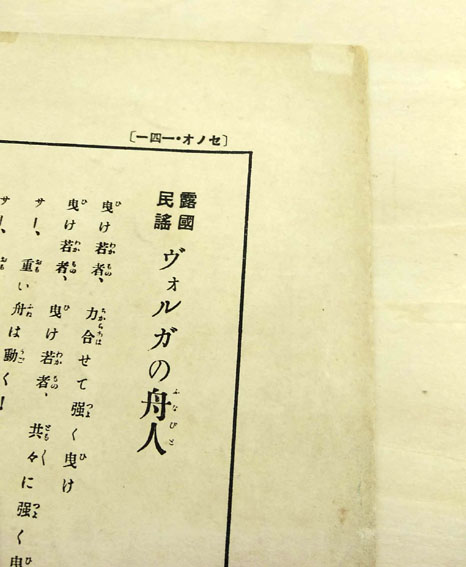 〔セノオ・一四一〕
露國
民謠
ヴォルガの舟人
ふなびと
曳け若者、力合せて强く曳け
曳け若者、曳け若者、共々に强く曳
サー、重い舟は動く!
サー、